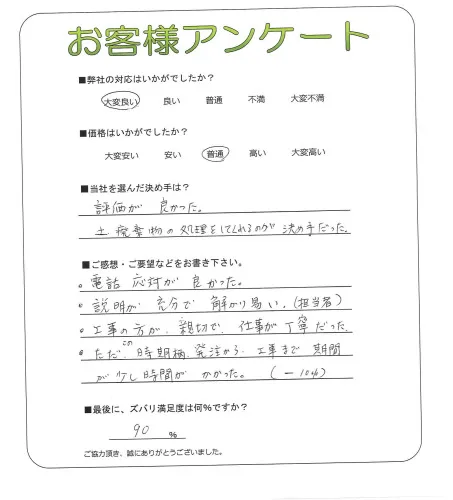 お客様アンケート
■弊社の対応はいかがでしたか?
大変良い 良い 普通 不満 大変不満
■価格はいかがでしたか?
大変安い 安い 普通 高い 大変高い
■当社を選んだ決め手は?
評価が 良かった。
土、廃棄物の処理をしてくれるのが 決め手だった。
■ご感想・ご要望などをお書き下さい。
。電話 応対が 良かった。
。説明が 充分で 解かり易い。(担当者)
。工事の方が、親切で、仕事が丁寧だった。
。ただ、この時期柄、発注から、工事まで 期間
が少し時間が かかった。 (-10%)
■最後に、ズバリ満足度は何%ですか?
90 %
ご協力頂き、誠にありがとうございました。